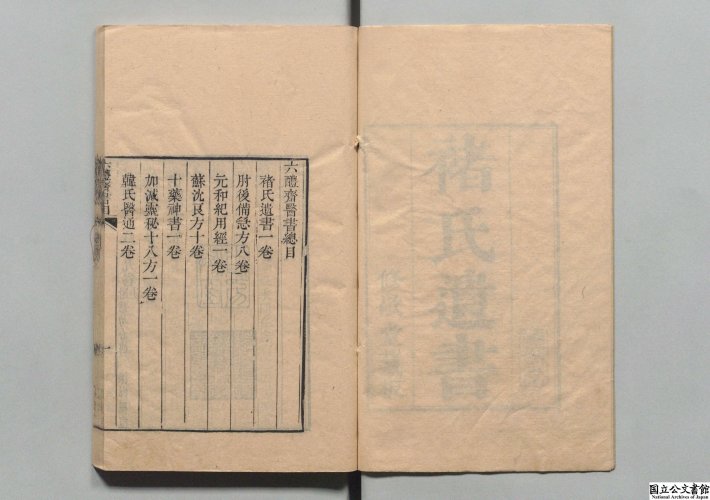 六醴齋醫書總目
褚氏遺書一卷
肘後備急方八卷
元和紀用經一卷
蘇沈良方十卷
十藥神書一卷
加減靈秘十八方一卷
韓氏醫通二卷
褚氏遺書
国立公文書館
National Archives of Japan